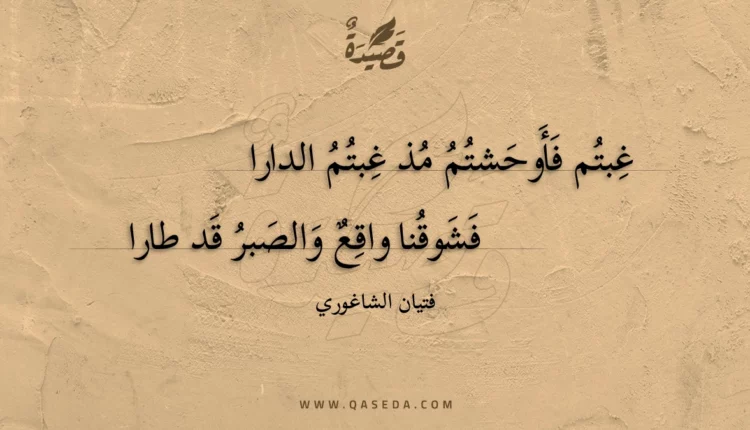 قَصِيدَةٌ
غِبتُم فَأَوحَشتُمُ مُذ غِبتُمُ الدارا
فَشَوقُنا واقِعٌ وَالصَبرُ قَد طارا
فتيان الشاغوري
WWW.QASEDA.COM